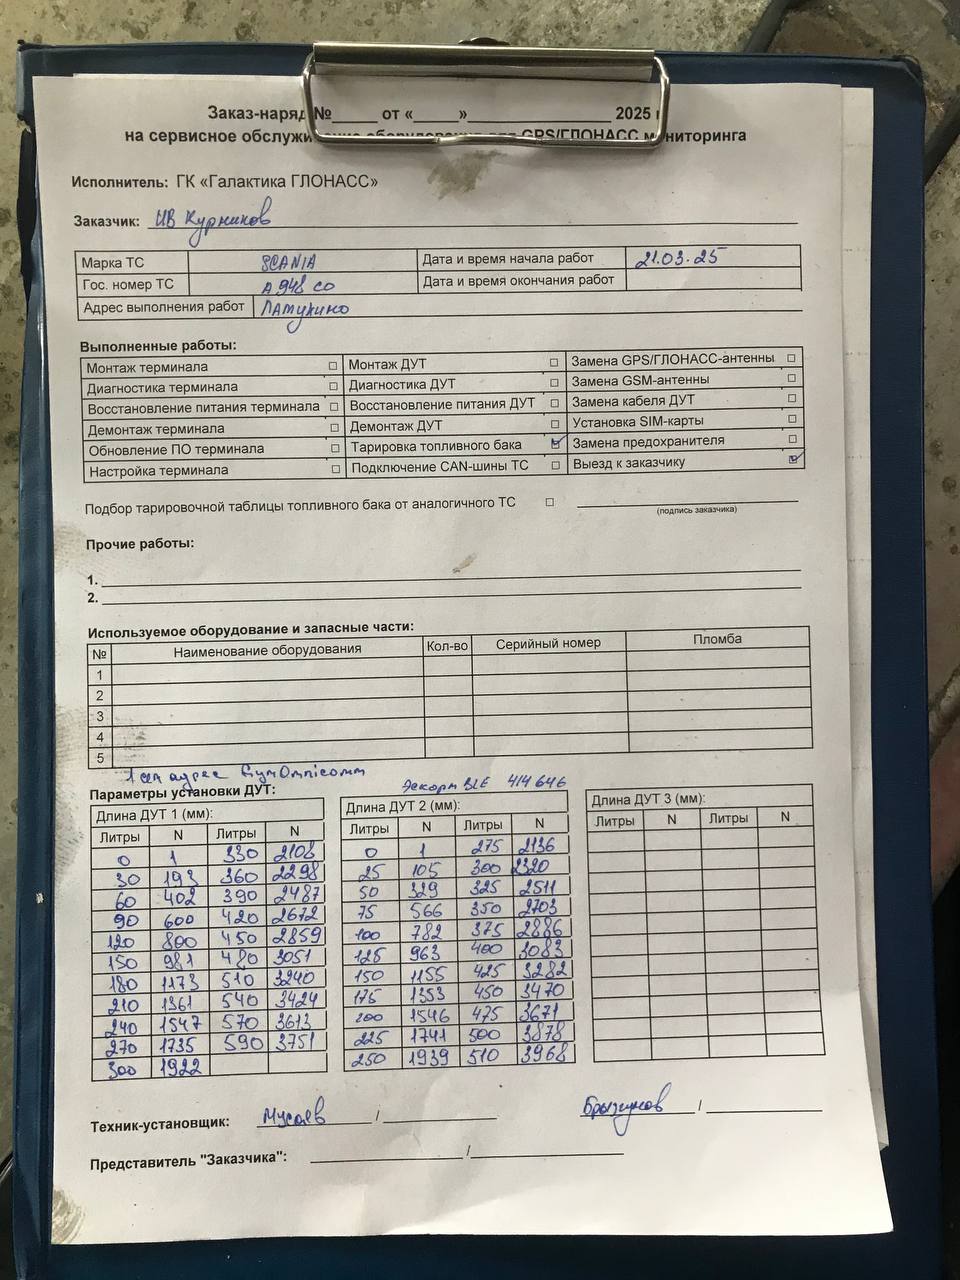 Заказ-наряд №_____ от «_____»________________ 2025 г
на сервисное обслуживание оборудования для GPS/ГЛОНАСС мониторинга
Исполнитель: ГК «Галактика ГЛОНАСС»
Заказчик: ИВ Курников
Марка ТС SCANIA Дата и время начала работ 21.03.25
Гос. номер ТС А 948 СО Дата и время окончания работ
Адрес выполнения работ Памукино
Выполненные работы:
Монтаж терминала □ Монтаж ДУТ □ Замена GPS/ГЛОНАСС-антенны □
Диагностика терминала □ Диагностика ДУТ □ Замена GSM-антенны □
Восстановление питания терминала □ Восстановление питания ДУТ □ Замена кабеля ДУТ □
Демонтаж терминала □ Демонтаж ДУТ □ Установка SIM-карты □
Обновление ПО терминала □ Тарировка топливного бака ☑ Замена предохранителя □
Настройка терминала □ Подключение CAN-шины ТС □ Выезд к заказчику ☑
Подбор тарировочной таблицы топливного бака от аналогичного ТС □
(подпись заказчика)
Прочие работы:
1.
2.
Используемое оборудование и запасные части:
№ Наименование оборудования Кол-во Серийный номер Пломба
1
2
3
4
5
1 сет адрес Omnicomm Эскорт BLE 414646
Параметры установки ДУТ:
Длина ДУТ 1 (мм): Длина ДУТ 2 (мм): Длина ДУТ 3 (мм):
Литры N Литры N Литры N Литры N Литры N Литры N
0 1 330 2108 0 1 275 2136
30 193 360 2298 25 105 300 2320
60 402 390 2487 50 329 325 2511
90 600 420 2672 75 566 350 2703
120 800 450 2859 100 782 375 2886
150 981 480 3051 125 963 400 3083
180 1173 510 3240 150 1155 425 3282
210 1361 540 3424 175 1353 450 3470
240 1547 570 3613 200 1546 475 3671
270 1735 590 3751 225 1741 500 3878
300 1922 250 1939 510 3968
Техник-установщик: Мусаев / Брызгунов /
Представитель "Заказчика": /